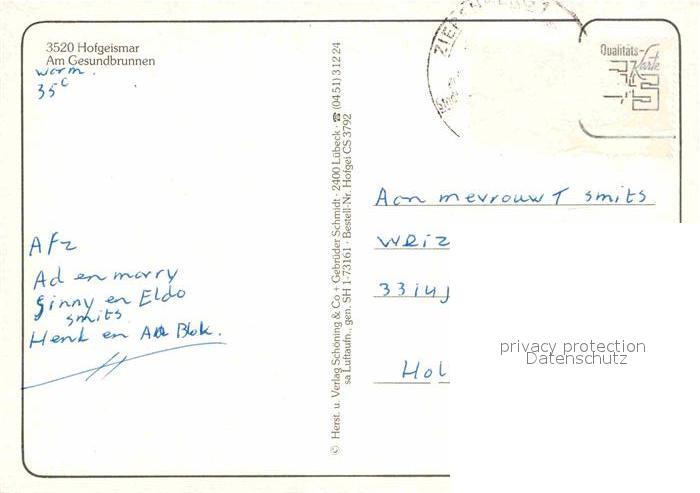 3520 Hofgeismar
Am Gesundbrunnen
warm.
35°
Afz
Ad en marry
Ginny en Eldo
smits
Henk en Blok.
© Herst. u. Verlag Schöning & Co + Gebrüder Schmidt · 2400 Lübeck · ☎ (0451) 3 12 24
sa Luftaufn., gen. SH 1-73161 · Bestell-Nr. Hofgei CS 3792
Qualitäts-
Karte
Aan mevrouw T smits
weiz
33
Hol
privacy protection
Datenschutz